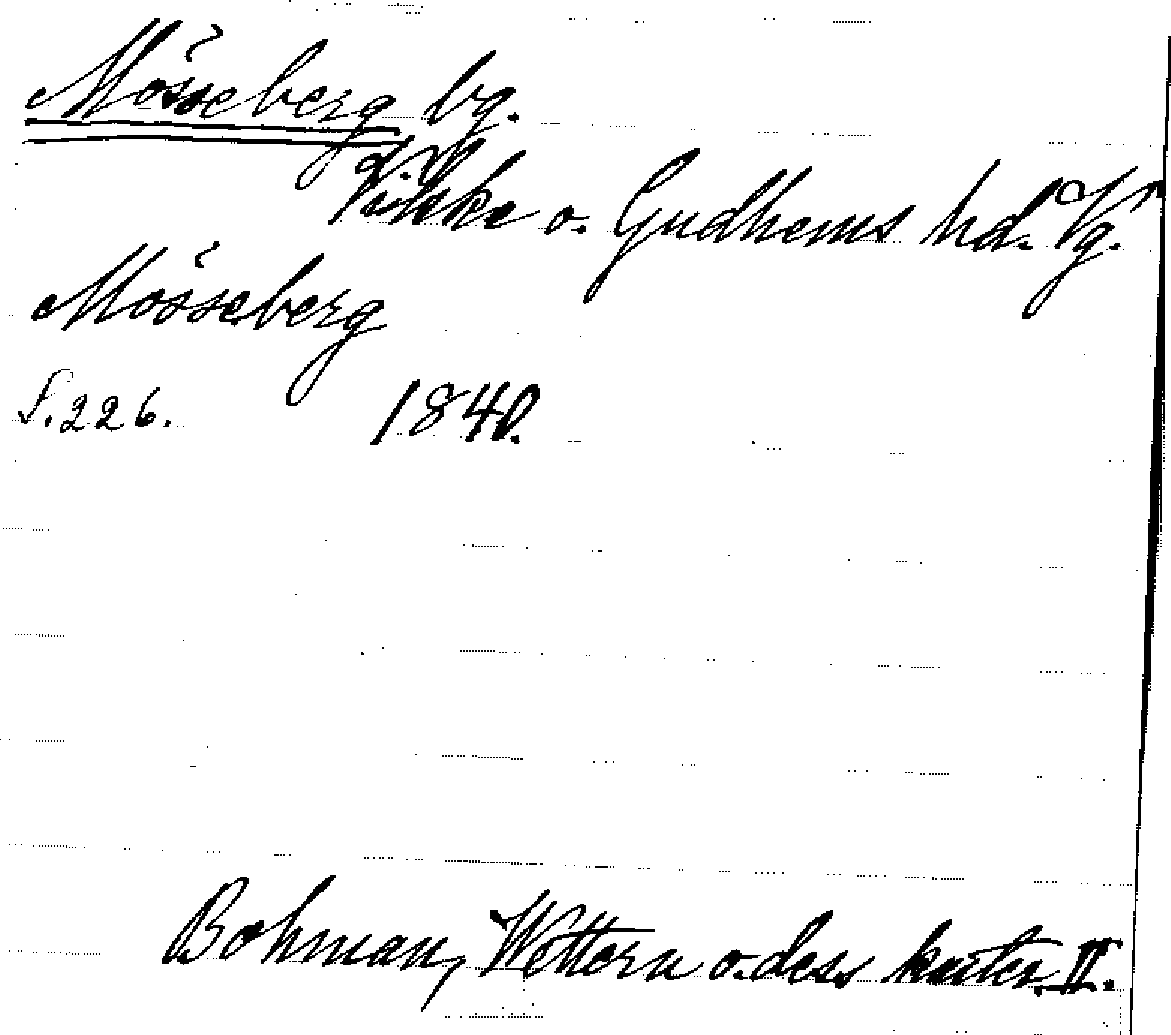 Mösseberg bg.
Vilske o. Gudhems hd. Vg.
Mösseberg
S. 226. 1840.
Bohman, Wettern o. dess kuster. II.